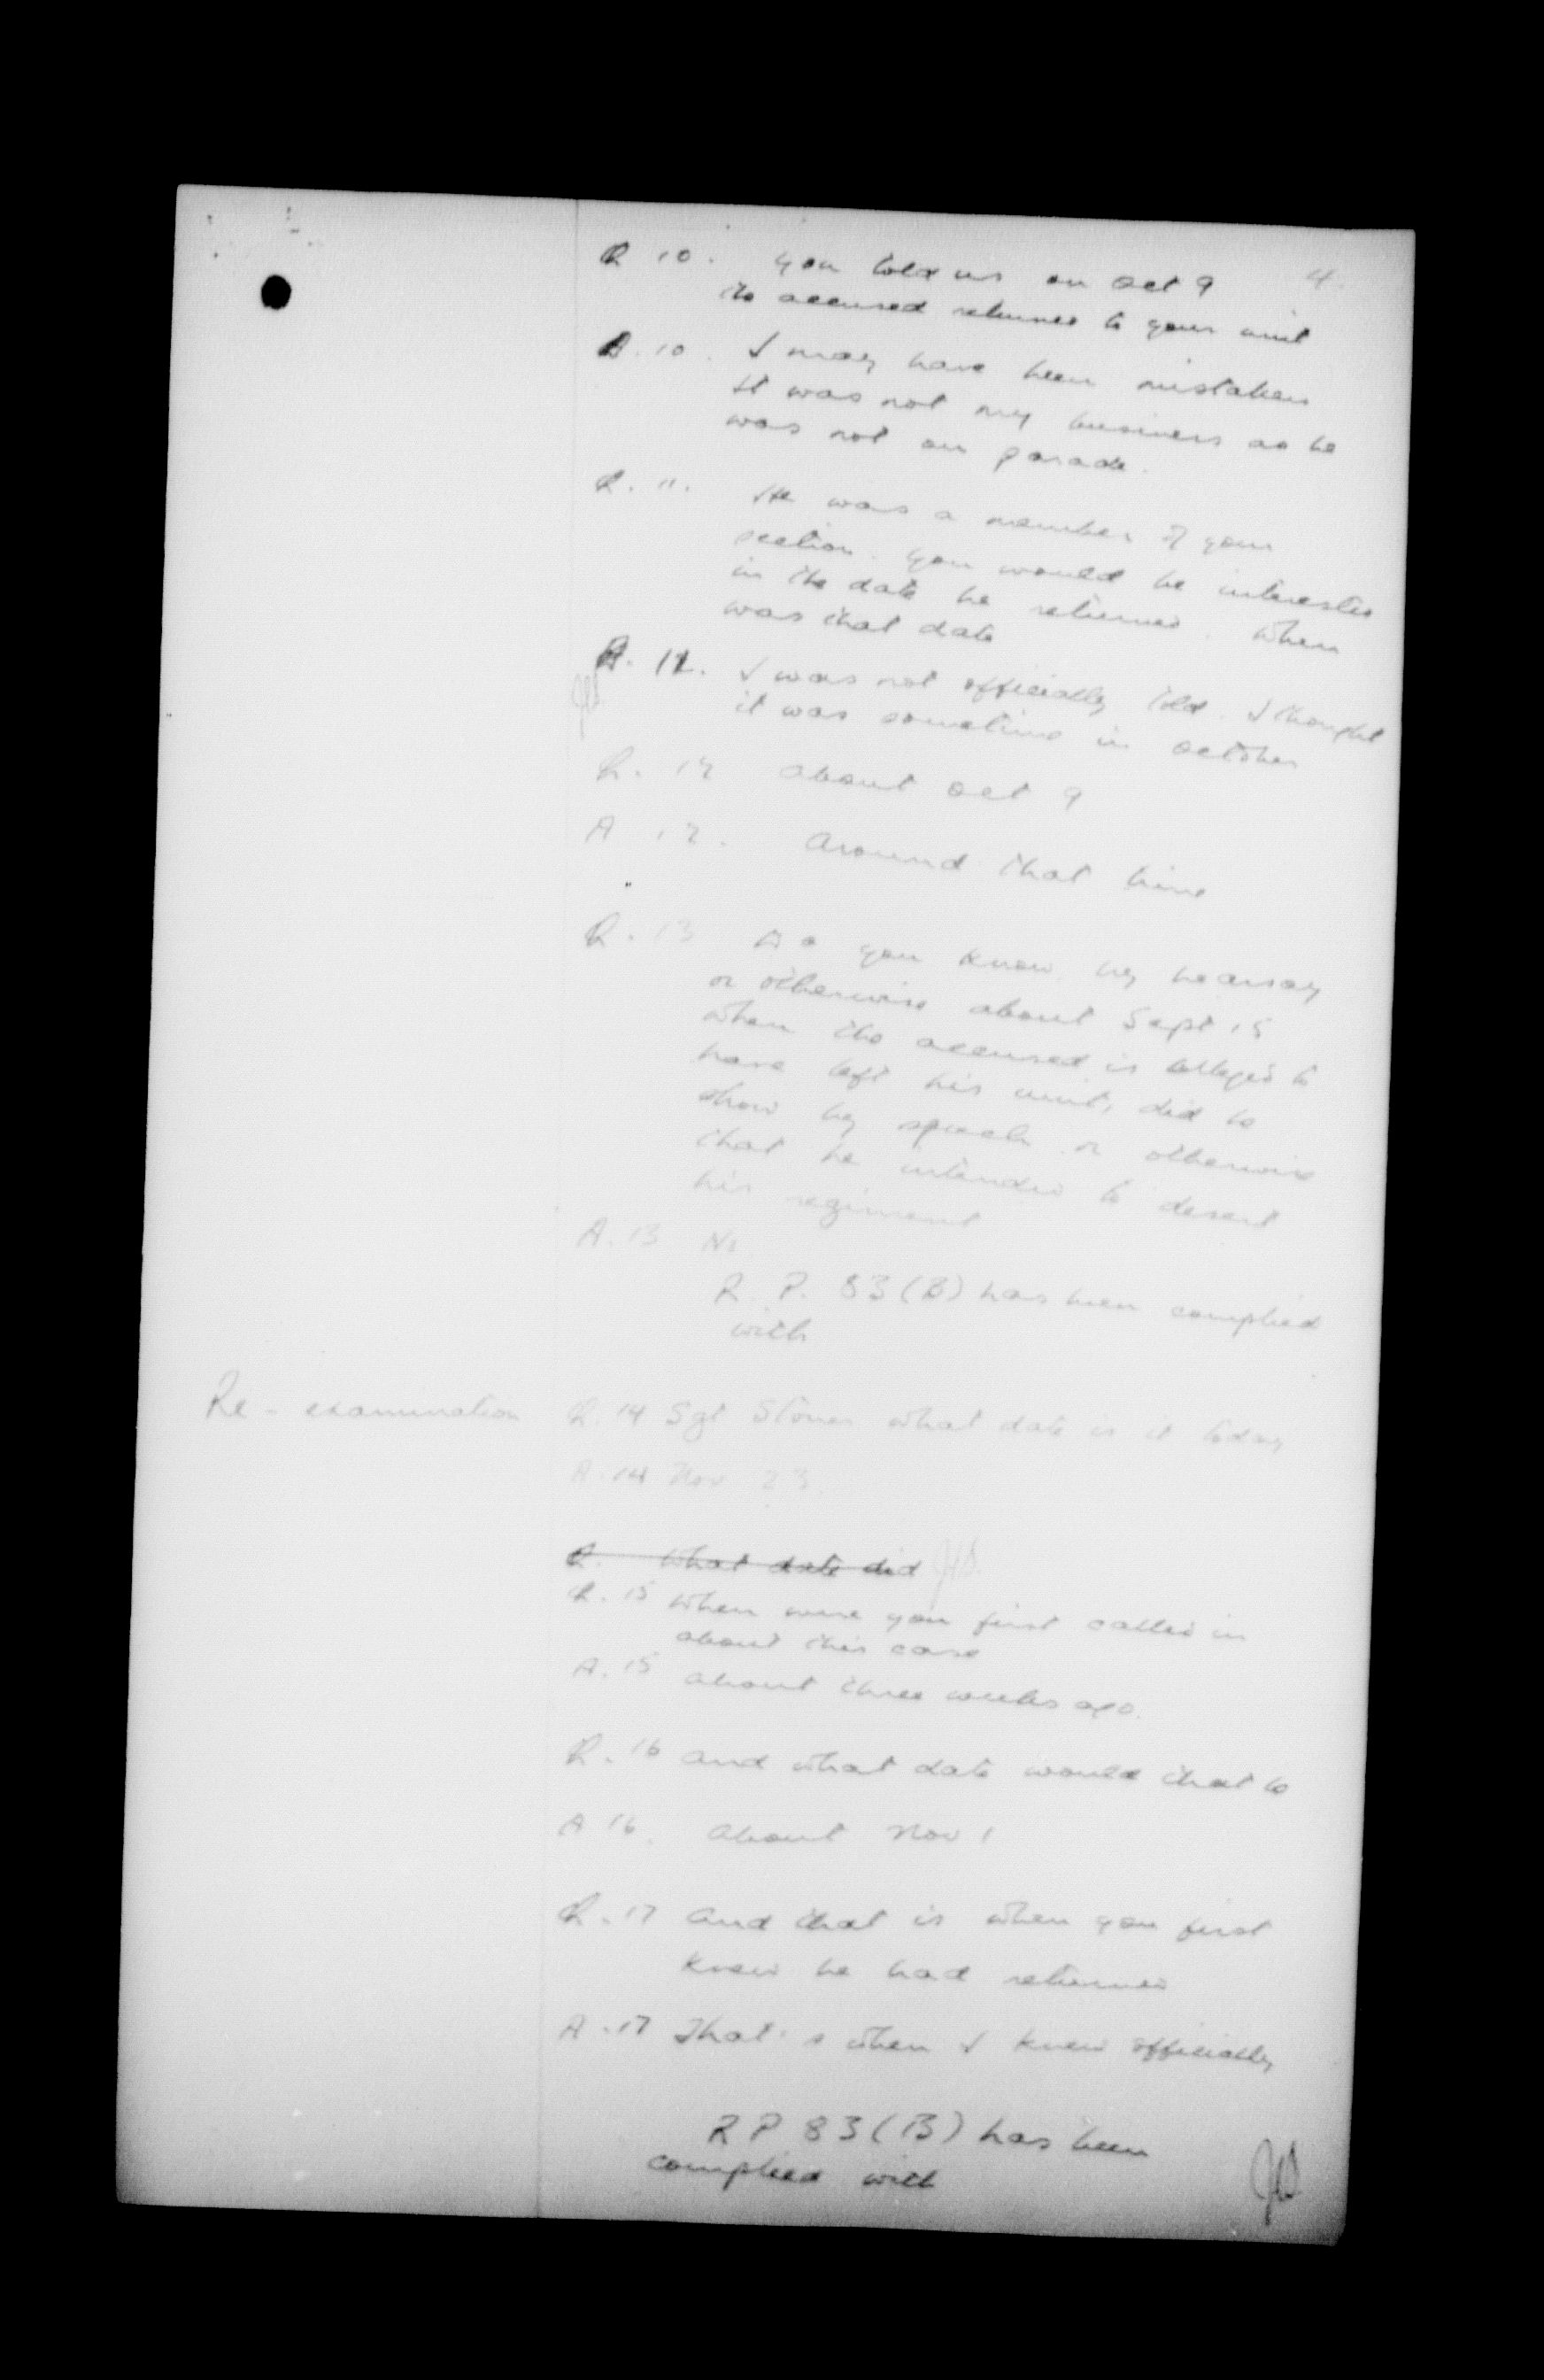 4.
Q 10. You told us on Oct 9
the accused returned to your unit
A. 10. I may have been mistaken
It was not my business as he
was not on parade.
Q. 11. He was a member of your
section. You would be interested
in the date he returned. When
was that date
A. 11. I was not officially told. I thought
it was sometime in October
Q. 12 About Oct 9
A 12. Around that time
Q. 13 Do you know by hearsay
or otherwise about Sept 15
when the accused is alleged to
have left his unit, did he
show by speech or otherwise
that he intended to desert
his regiment
A. 13 No
R. P. 83 (B) has been complied
with
Re-examination Q. 14 Sgt Stoner what date is it today
A. 14 Nov 23
Q. What date did
Q. 15 When were you first called in
about this case
A. 15 About three weeks ago.
Q. 16 And what date would that be
A 16. About Nov 1
Q. 17 And that is when you first
knew he had returned
A. 17 That's when I knew officially
R P 83 (B) has been
complied with